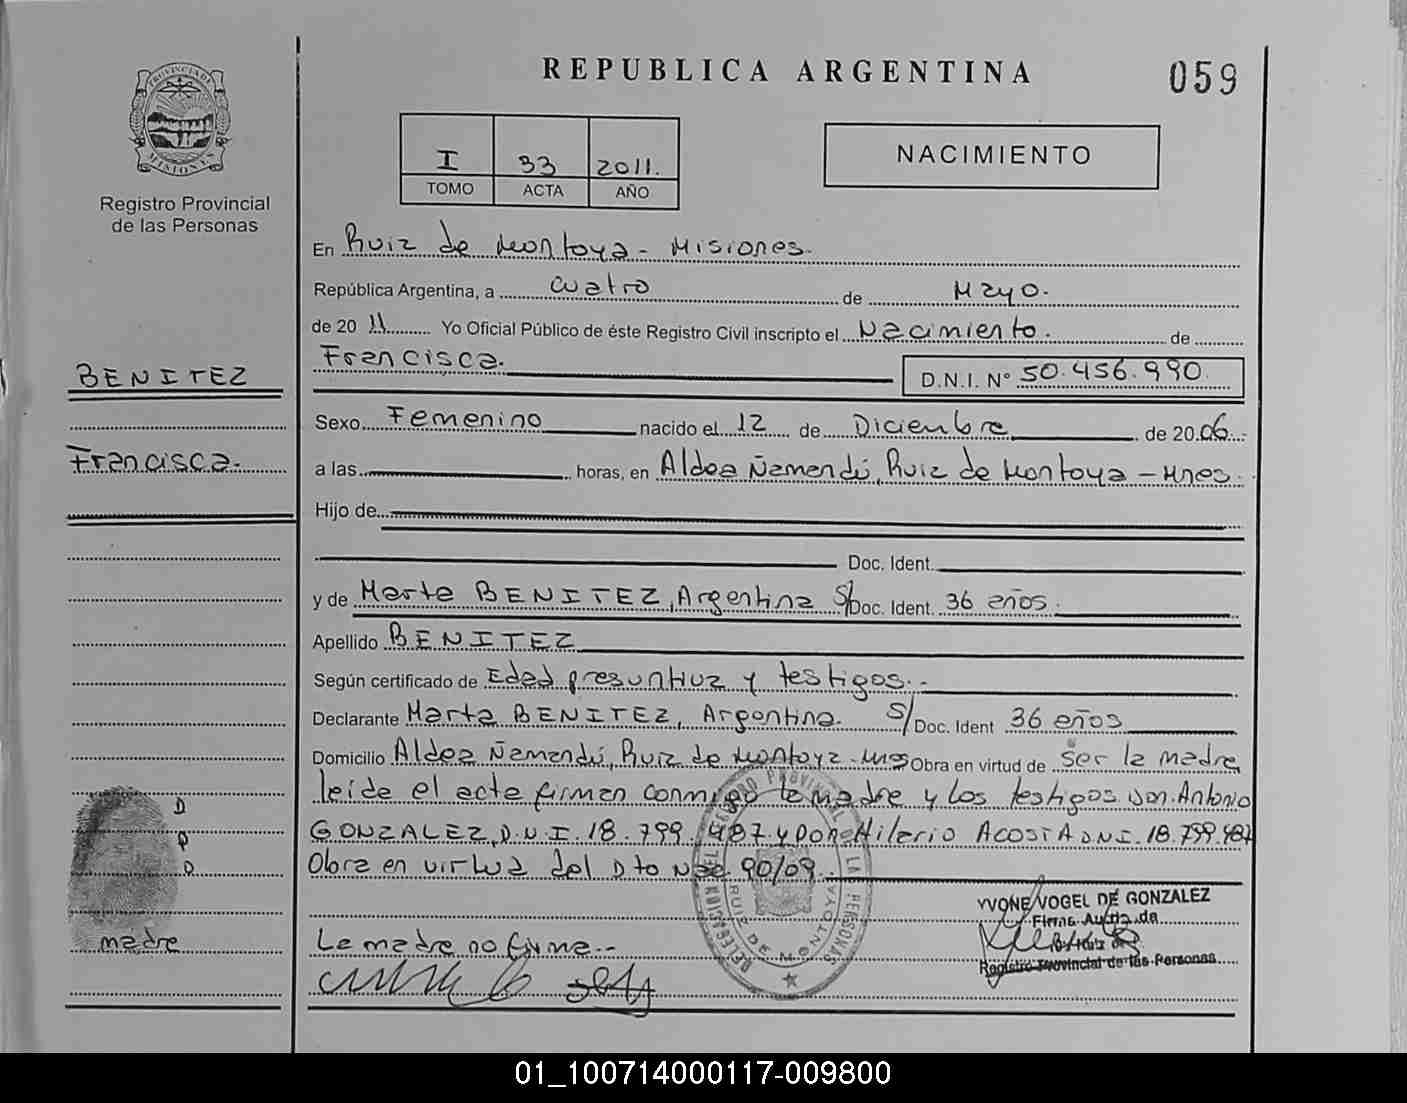 REPUBLICA ARGENTINA
059
PROVINCIA DE
MISIONES
Registro Provincial
de las Personas
I 33 2011.
TOMO ACTA AÑO
NACIMIENTO
En Ruiz de Montoya - Misiones.
República Argentina, a cuatro de Mayo.
de 20 11 Yo Oficial Público de éste Registro Civil inscripto el Nacimiento. de
Francisca.
D.N.I. Nº 50.456.990.
BENITEZ
Francisca.
Sexo Femenino nacido el 12 de Diciembre de 20 06
a las horas, en Aldea Ñamandú, Ruiz de Montoya - Mnes.
Hijo de
Doc. Ident.
y de Marta BENITEZ, Argentina S/Doc. Ident. 36 años.
Apellido BENITEZ
Según certificado de Edad presuntiva y testigos.
Declarante Marta BENITEZ, Argentina. S/Doc. Ident 36 años
Domicilio Aldea Ñamandú, Ruiz de Montoya - Mnes Obra en virtud de ser la madre
leída el acta firman conmigo la madre y los testigos Don Antonio
GONZALEZ, D.N.I. 18.799.487 y Don Hilario ACOSTA D.N.I. 18.799.487
Obra en virtud del Dto Nac 90/09.
La madre no firma.
D
P
D
madre
REGISTRO PROVINCIAL DE LAS PERSONAS
RUIZ DE MONTOYA
YVONE VOGEL DE GONZALEZ
Firma Autda. de
Registro Provincial de las Personas
01_100714000117-009800